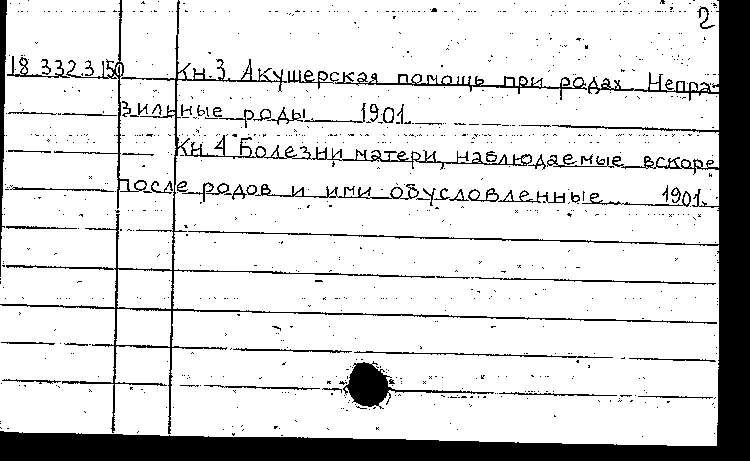 2
18.332.3.150 Кн.3. Акушерская помощь при родах. Непра-
вильные роды. 1901.
Кн.4. Болезни матери, наблюдаемые вскоре
после родов и ими обусловленные. 1901.